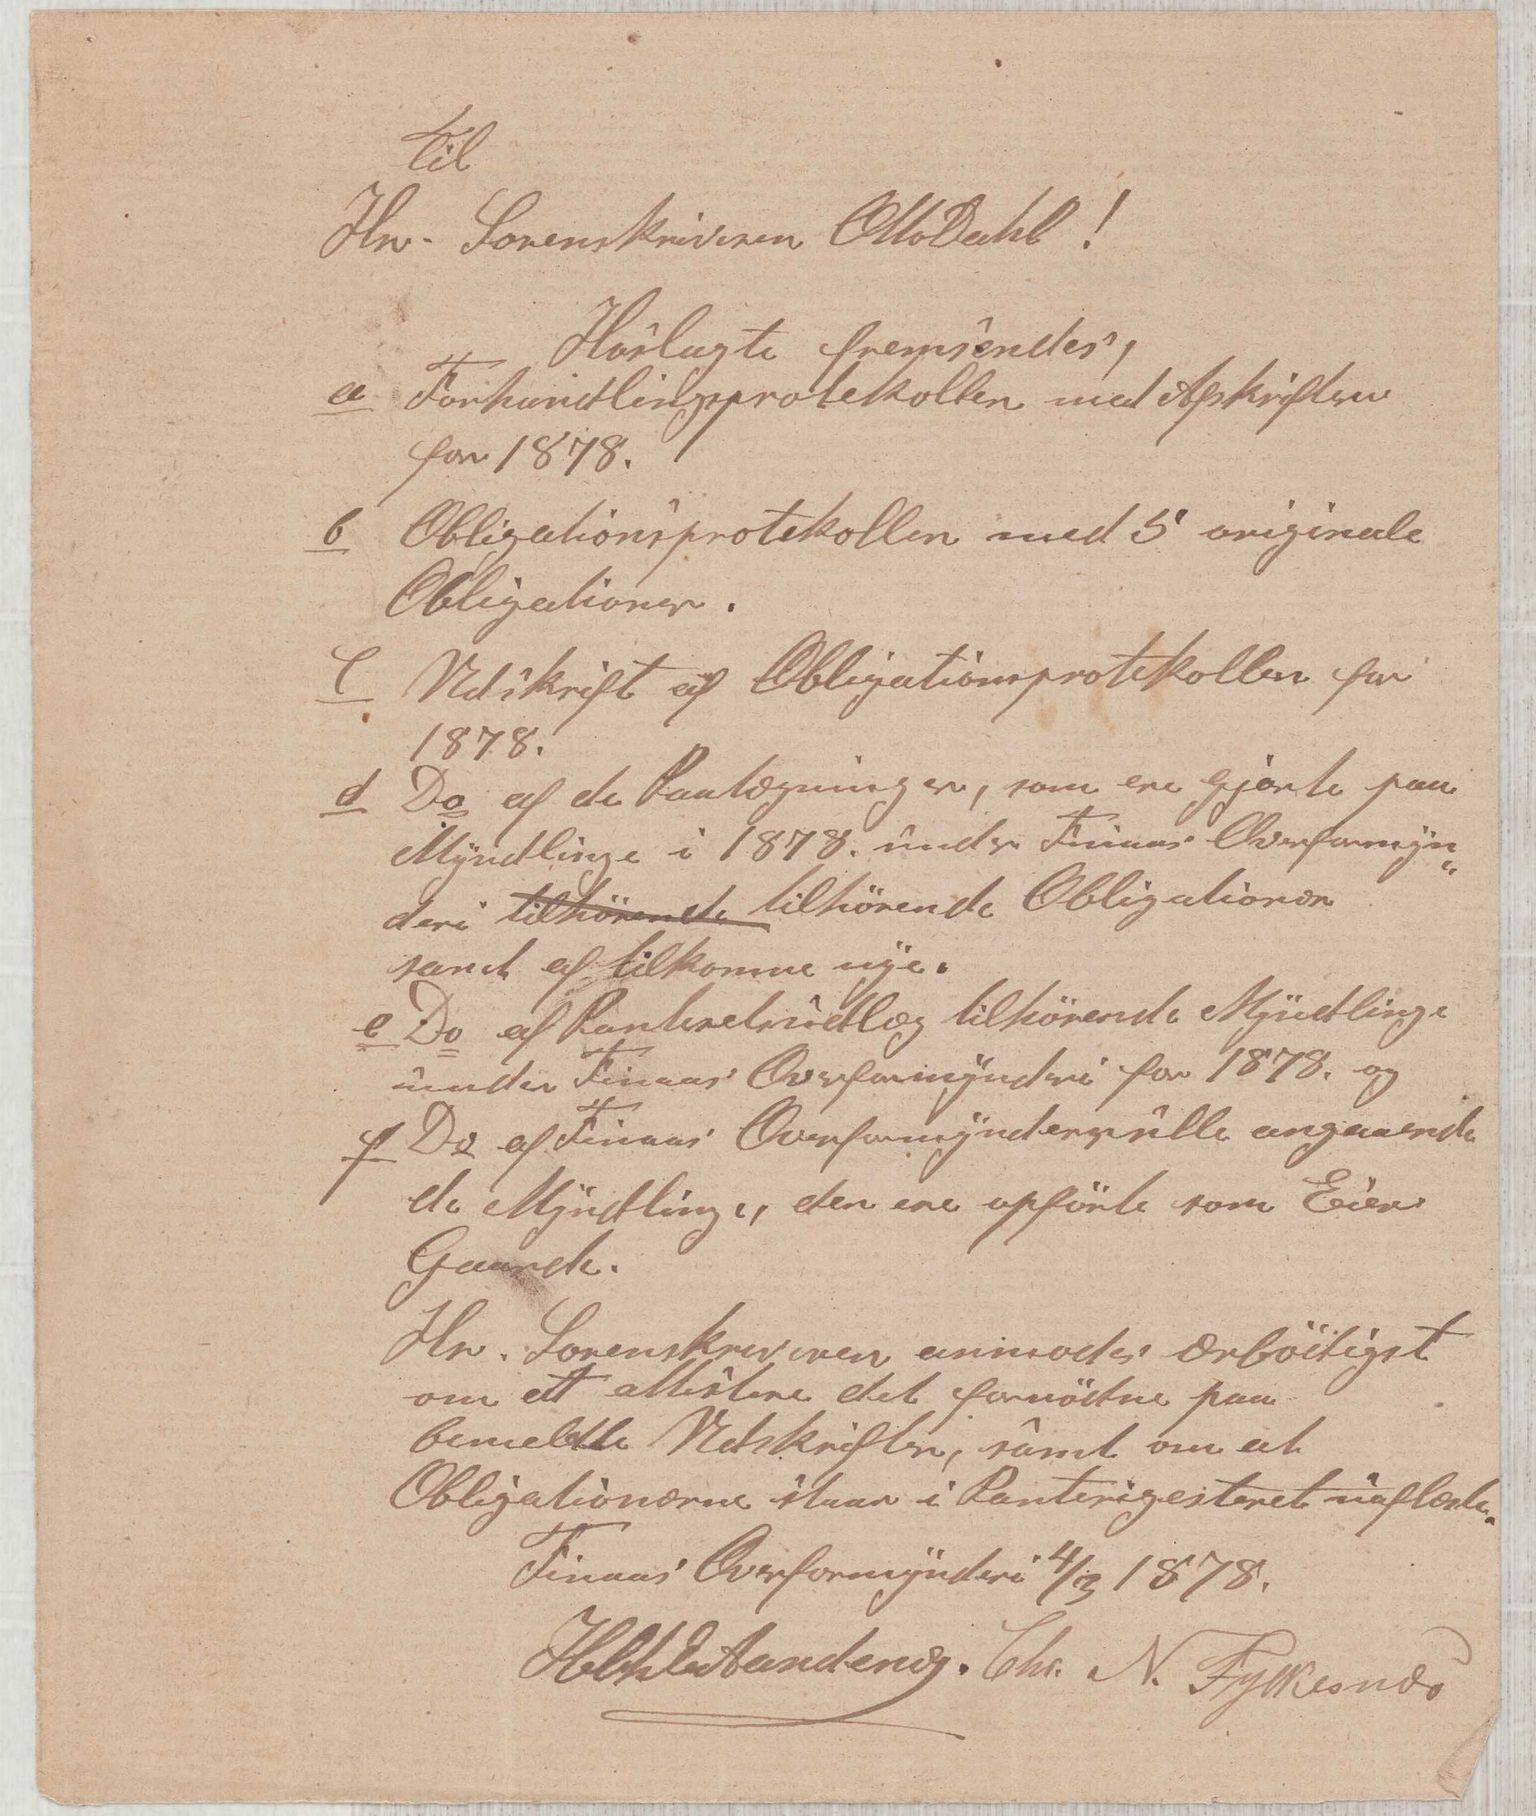 Til
Hr. Sorenskriveren Otto Dahl!
Hoslagte fremsendes,
a Forhandlingsprotekollen med Afskriften
for 1878.
b Obligationsprotekollen med 5 originale
Obligationer.
c Udskrift af Obligationsprotekollen for
1878.
d Do af de Paategninger, som ere gjorte paa
Myndlinge i 1878. under Finaas Overformyn„
deri tilhörende tilhörende Obligationer
samt af tilkomne nye.
e Do af Panteretsudlæg tilhörende Myndlinge
under Finaas Overformynderi for 1878. og
f Do af Finaas Overformynderrulle angaaende
de Myndlinge, der ere opförte som Eiere
Gaarde.
Hr. Sorenskriveren anmodes ærbödigst
om at attestere det fornödne paa
bemeldte Udskrifter, samt om at
Obligationerne staar i Panterigesteret uaflæste.
Finaas Overformynderi 4/3 1878.
Aandenes. Chr. N. Fykkesnes